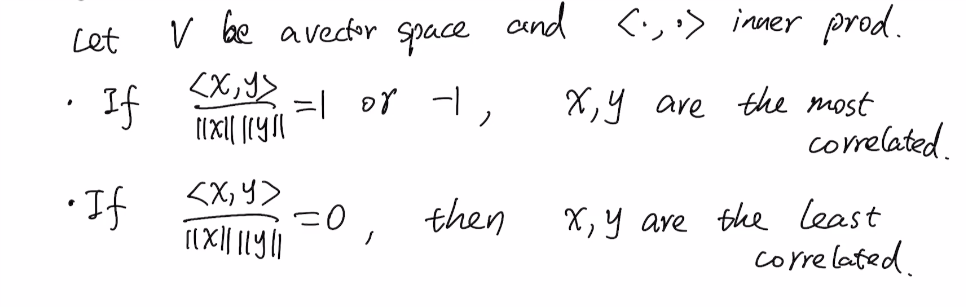 Let V be a vector space and <·,·> inner prod.
· If <x,y> / ||x|| ||y|| = 1 or -1, x,y are the most
correlated.
· If <x,y> / ||x|| ||y|| = 0, then x,y are the least
correlated.